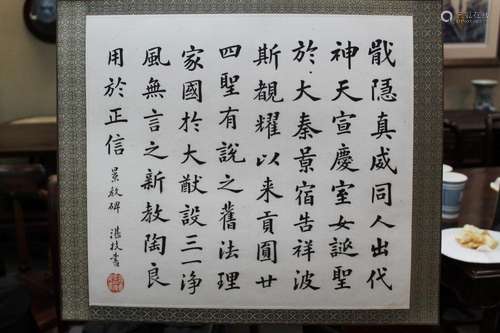 戢隱真威同人出代
神天宣慶室女誕聖
於大秦景宿告祥波
斯覩耀以来貢圓廿
四聖有說之舊法理
家國於大猷設三一浄
風無言之新教陶良
用於正信 景教碑 湛枝書